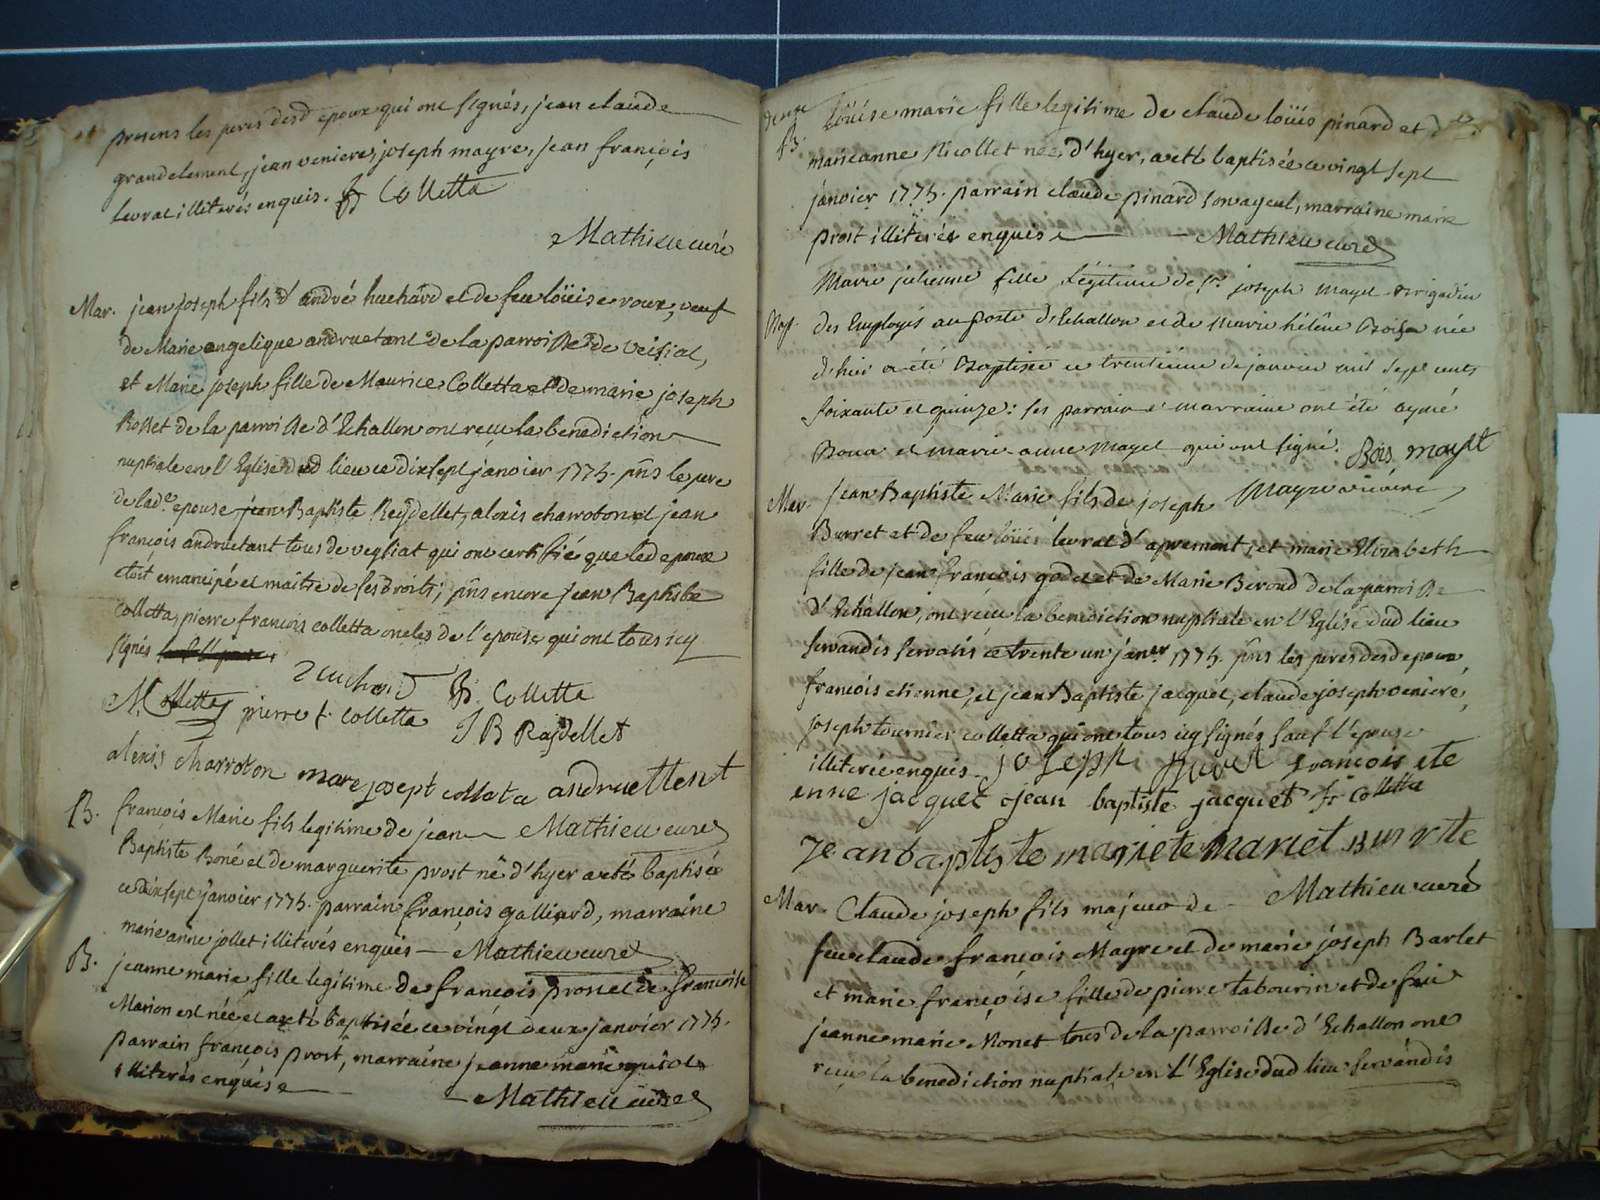 presens les peres desd epoux qui ont signés, jean claude
grandclement, jean veniere, joseph mayre, jean françois
levrat illiterés enquis. Colletta
Mathieu curé
Mar. jean joseph fils d'andré huchard et de feu loüise roux, veuf
de Marie angelique andruetant de la parroisse de veisiat,
et Marie joseph fille de Maurice Colletta et de marie joseph
Rosset de la parroisse d'Echallon ont reçu la benediction
nuptiale en l'Eglise dud lieu ce dixsept janvier 1775. pns le pere
de lade epouse jean Baptiste Reydellet, alexis charroton et jean
françois andruetant tous de vegliat qui ont certiffié que led epoux
etoit emancipé et maitre de ses droits; pns encore jean Baptiste
Colletta, pierre francois colletta oncles de l'epouse qui ont tous icy
signés
huchard Colletta
M. Colletta pierre f. Colletta J B Raydellet
alexis charroton marie josept collata andruettent
B. françois Marie fils legitime de jean Mathieu curé
Baptiste Boné et de marguerite prost né d'hyer a eté baptisé
ce dixsept janvier 1775. parrain françois galliard, marraine
marie anne jollet illiterés enquis Mathieu curé
B. jeanne marie fille legitime de françois prost et de françoise
Marion est née et a eté baptisée ce vingt deux janvier 1775.
parrain françois prost, marraine jeanne marie
illiterés enquise
Mathieu curé
B. Loüise marie fille legitime de claude loüis pinard et de
marieanne Nicollet née d'hyer, a eté baptisée ce vingt sept
janvier 1775. parrain claude pinard son ayeul, marraine marie
prost illiterés enquise Mathieu curé
Marie julienne fille Légitime de sr joseph mayet Brigadier
Bap. des Employés au poste d'Echallon et de marie héléne Boisa née
d'hier a été Baptisée ce trentiéme de janvier mil sept cents
soixante et quinze: ses parrain et marraine ont été aymé
et marie anne mayet qui ont signé. mayet
Mar. jean Baptiste Marie fils de joseph Mayre vicaire
Burret et de feu loüise levrat d'apremont, et marie Elizabeth
fille de jean françois godet et de Marie Beroud de la parroisse
d'Echallon, ont reçu la benediction nuptiale en l'Eglise dud lieu
servandis servatis ce trente un janer 1775. pns les peres desd epoux,
francois etienne, et jean Baptiste jacquet, claude joseph veniere,
joseph tournier, colletta qui ont tous icy signés sauf l'epouse
illiterée enquis. joseph francois ete
enne jacquet jean baptiste jacquet Colletta
Jean baptiste
Mar. Claude joseph fils majeur de Mathieu curé
feu claude françois Mayre et de marie joseph Barlet
et marie françoise fille de pierre tabourin et de feüe
jeanne marie Monet tous de la parroisse d'Echallon ont
reçu la benediction nuptiale en l'Eglise dud lieu servandis